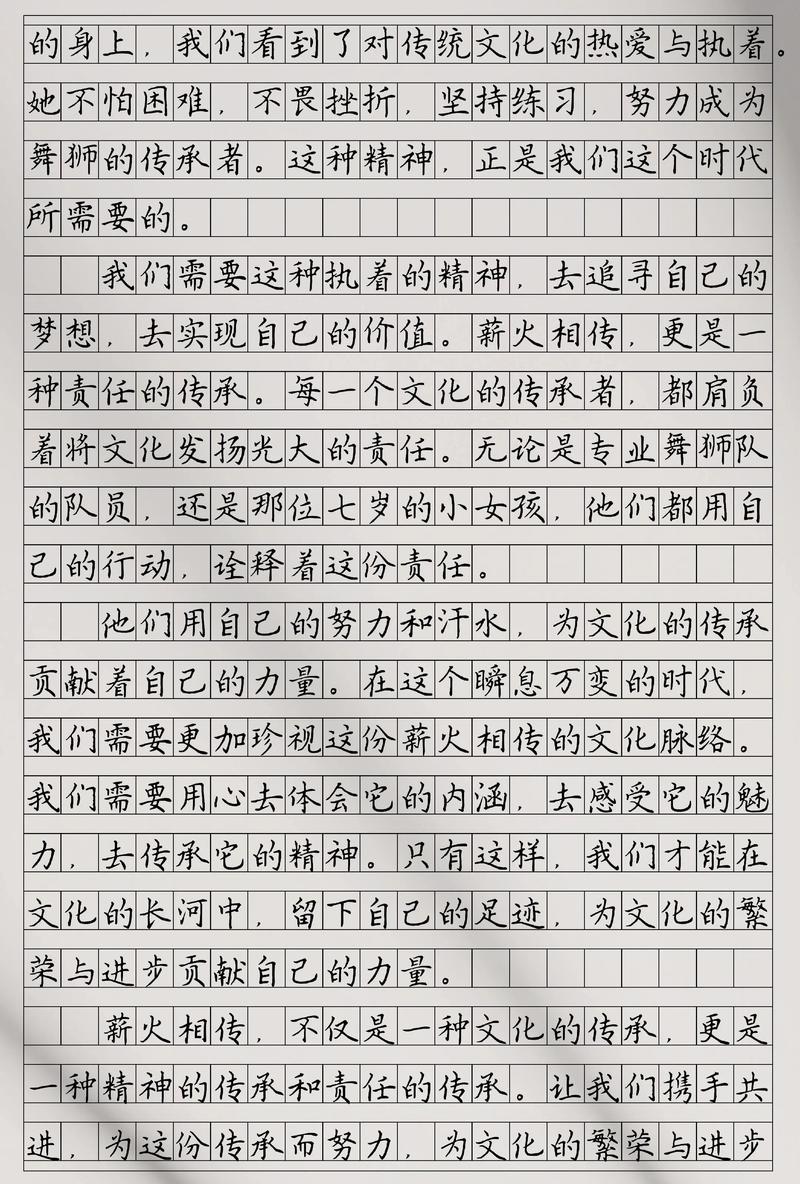 的身上，我们看到了对传统文化的热爱与执着。
她不怕困难，不畏挫折，坚持练习，努力成为
舞狮的传承者。这种精神，正是我们这个时代
所需要的。
我们需要这种执着的精神，去追寻自己的
梦想，去实现自己的价值。薪火相传，更是一
种责任的传承。每一个文化的传承者，都肩负
着将文化发扬光大的责任。无论是专业舞狮队
的队员，还是那位七岁的小女孩，他们都用自
己的行动，诠释着这份责任。
他们用自己的努力和汗水，为文化的传承
贡献着自己的力量。在这个瞬息万变的时代，
我们需要更加珍视这份薪火相传的文化脉络。
我们需要用心去体会它的内涵，去感受它的魅
力，去传承它的精神。只有这样，我们才能在
文化的长河中，留下自己的足迹，为文化的繁
荣与进步贡献自己的力量。
薪火相传，不仅是一种文化的传承，更是
一种精神的传承和责任的传承。让我们携手共
进，为这份传承而努力，为文化的繁荣与进步